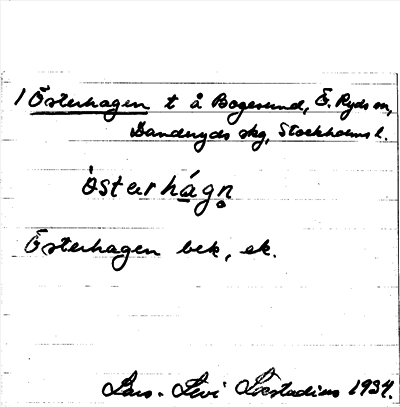 1 Österhagen t å Bogesund, Ö. Ryds sn,
Danderyds skg, Stockholms l.
òstarhágn̥
Österhagen bek, ek.
Lars-Levi Læstadius 1934.